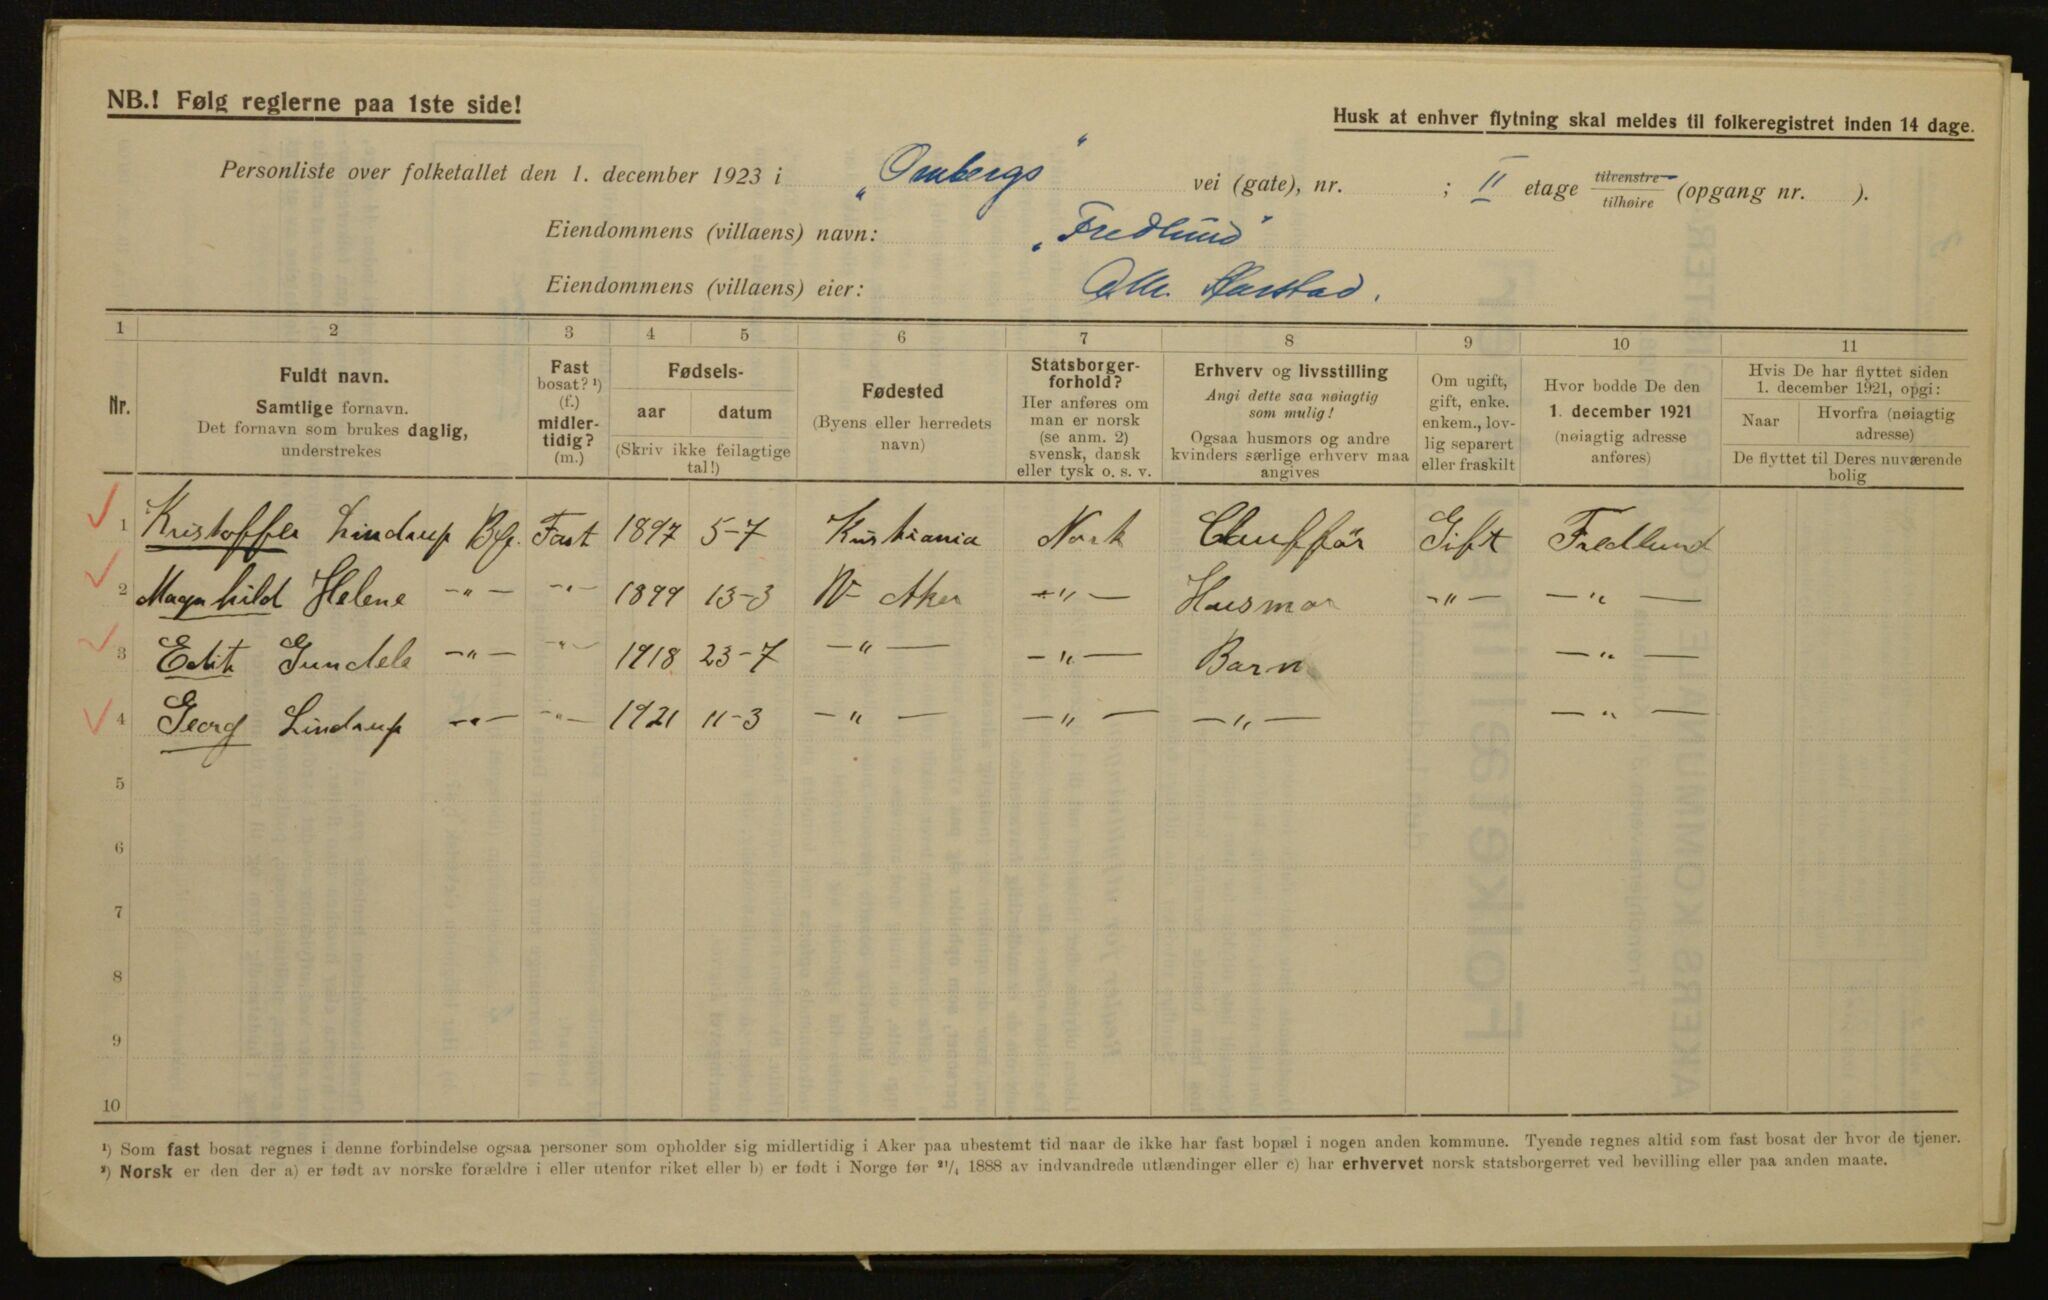 NB.! Følg reglerne paa 1ste side!
Husk at enhver flytning skal meldes til folkeregistret inden 14 dage.
Personliste over folketallet den 1. december 1923 i „Ombergs” vei (gate), nr. ; II etage tilvenstre tilhøire (opgang nr. ).
Eiendommens (villaens) navn: „Fredlund”
Eiendommens (villaens) eier: Harstad.
1 2 3 4 5 6 7 8 9 10 11
Nr.
Fuldt navn.
Samtlige fornavn.
Det fornavn som brukes daglig,
understrekes
Fast
bosat? ¹)
(f.)
midler-
tidig?
(m.)
Fødsels-
aar datum
(Skriv ikke feilagtige
tal!)
Fødested
(Byens eller herredets
navn)
Statsborger-
forhold?
Her anføres om
man er norsk
(se anm. 2)
svensk, dansk
eller tysk o. s. v.
Erhverv og livsstilling
Angi dette saa nøiagtig
som mulig!
Ogsaa husmors og andre
kvinders særlige erhverv maa
angives
Om ugift,
gift, enke.
enkem., lov-
lig separert
eller fraskilt
Hvor bodde De den
1. december 1921
(nøiagtig adresse
anføres)
Hvis De har flyttet siden
1. december 1921, opgi:
Naar
Hvorfra (nøiagtig
adresse)
De flyttet til Deres nuværende
bolig
1 Kristoffer Lindrup Fast 1897 5-7 Kristiania Norsk Chauffør Gift Fredlund
2 Magnhild Helene -„- -„- 1899 13-3 V Aker -„- Husmor -„- -„-
3 Edit Gundele -„- -„- 1918 23-7 -„- -„- Barn -„-
4 Georg Lindrup -„- -„- 1921 11-3 -„- -„- -„- -„-
5
6
7
8
9
10
¹) Som fast bosat regnes i denne forbindelse ogsaa personer som opholder sig midlertidig i Aker paa ubestemt tid naar de ikke har fast bopæl i nogen anden kommune. Tyende regnes altid som fast bosat der hvor de tjener.
²) Norsk er den der a) er født av norske forældre i eller utenfor riket eller b) er født i Norge før ²¹/₄ 1888 av indvandrede utlændinger eller c) har erhvervet norsk statsborgerret ved bevilling eller paa anden maate.